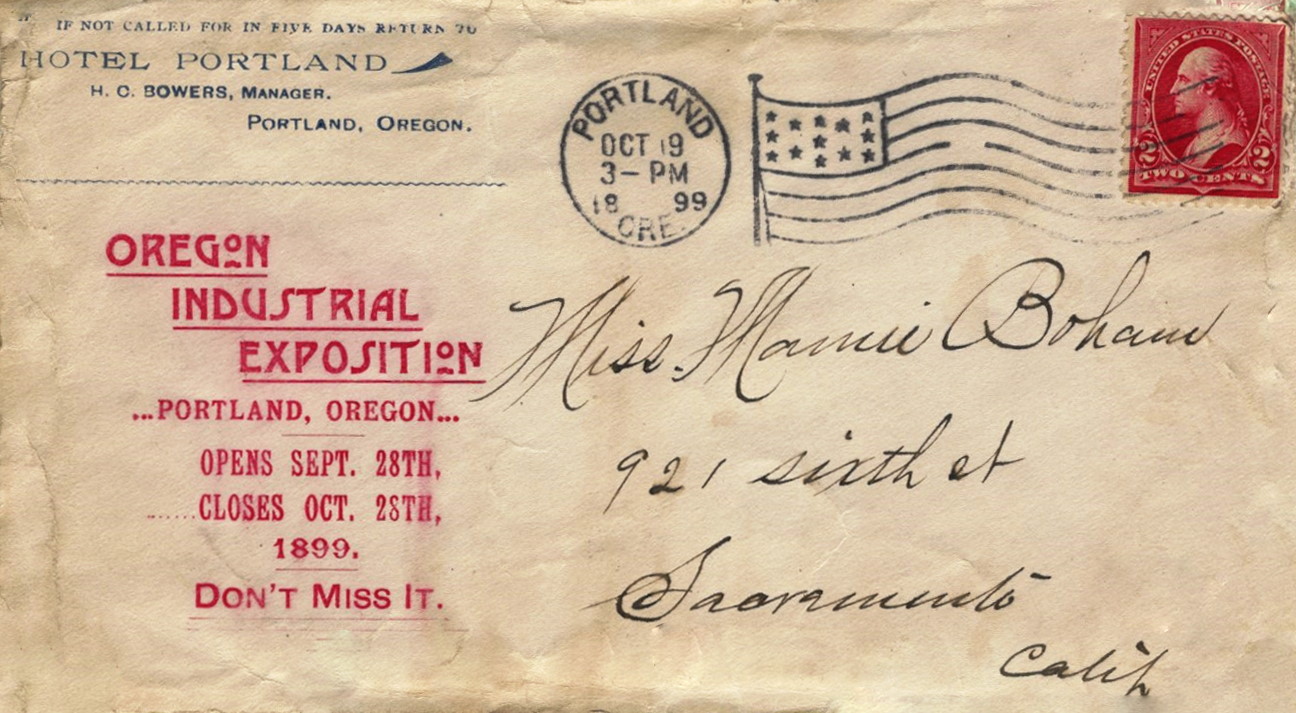 IF NOT CALLED FOR IN FIVE DAYS RETURN TO
HOTEL PORTLAND
H. C. BOWERS, MANAGER.
PORTLAND, OREGON.
PORTLAND
OCT 19
3- PM
18 99
ORE.
UNITED STATES POSTAGE
2 2
TWO CENTS
OREGON
INDUSTRIAL
EXPOSITION
...PORTLAND, OREGON...
OPENS SEPT. 28TH,
......CLOSES OCT. 28TH,
1899.
DON'T MISS IT.
Miss. Mamie
921 sixth st
Sacramento
Calif